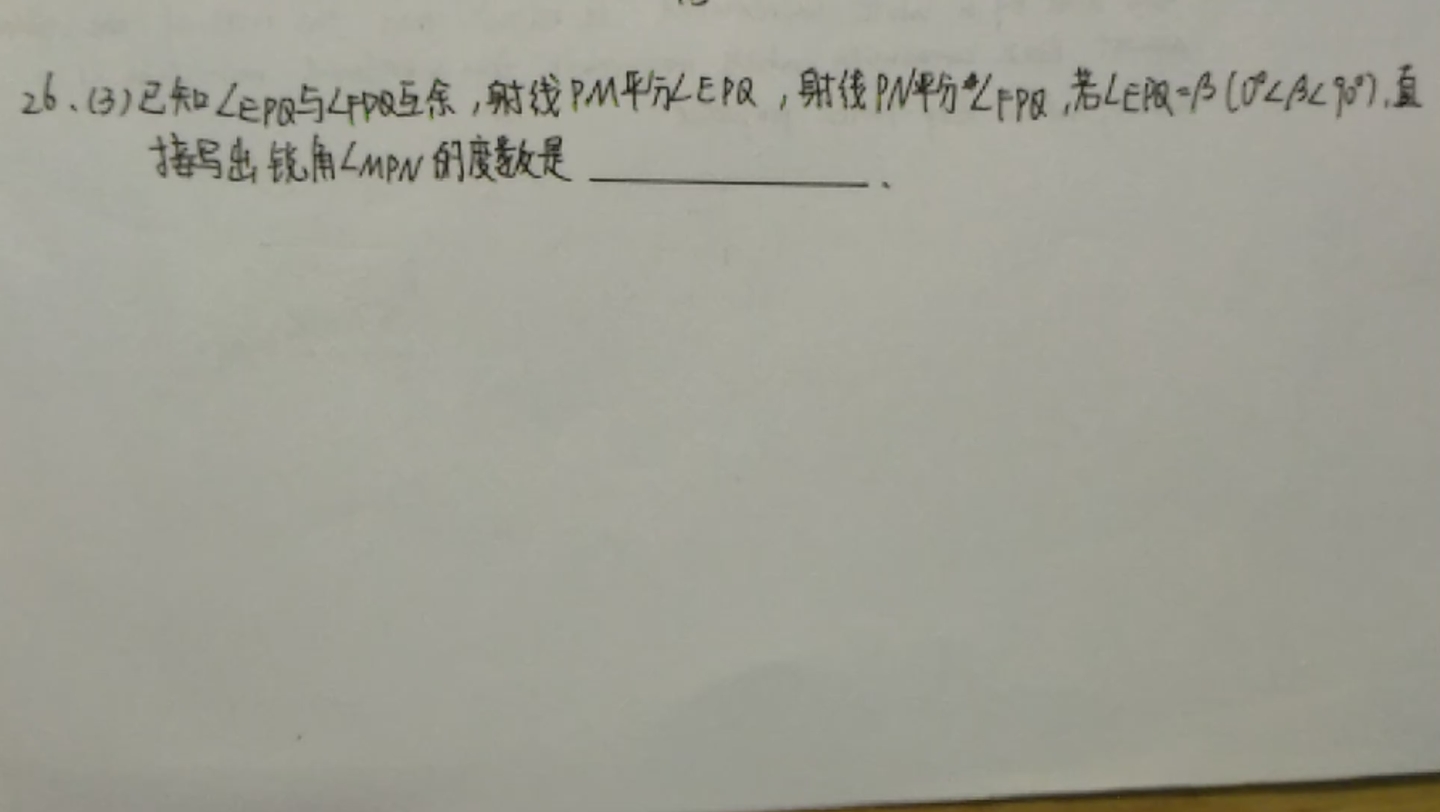 26、(3)已知∠EPQ与∠FPQ互余，射线PM平分∠EPQ，射线PN平分∠FPQ，若∠EPQ=β(0°<β<90°)，直
接写出锐角∠MPN的度数是________．